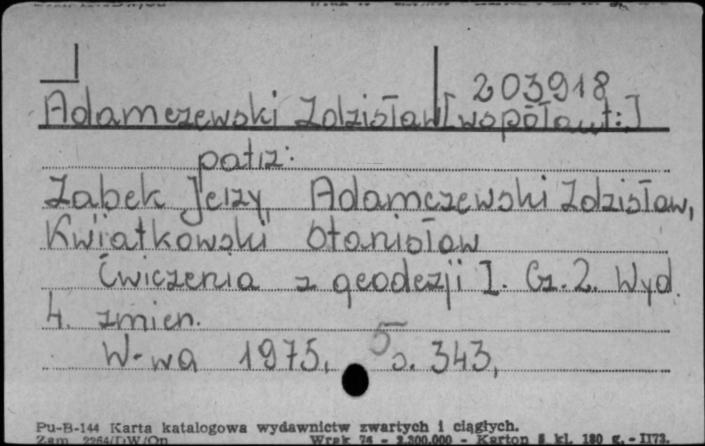 203918
Adamczewski Zdzisław [współaut:]
patrz:
Żabek Jerzy, Adamczewski Zdzisław,
Kwiatkowski Stanisław
Ćwiczenia z geodezji I. Cz. 2. Wyd.
4. zmien.
W-wa 1975, s. 343,
Pu-B-144 Karta katalogowa wydawnictw zwartych i ciągłych.
Zam. 2264/DW/On Wrak 76 - 2.300.000 - Karton 5 kl. 180 g. - II72.